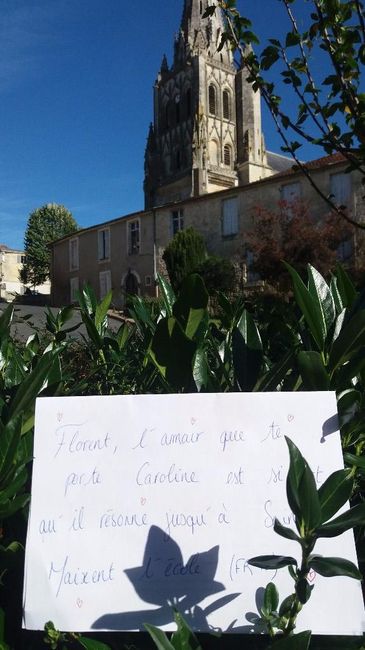 Florent, l'amour que te
porte Caroline est si
qu'il résonne jusqu'à Saint
Maixent l'école (FR